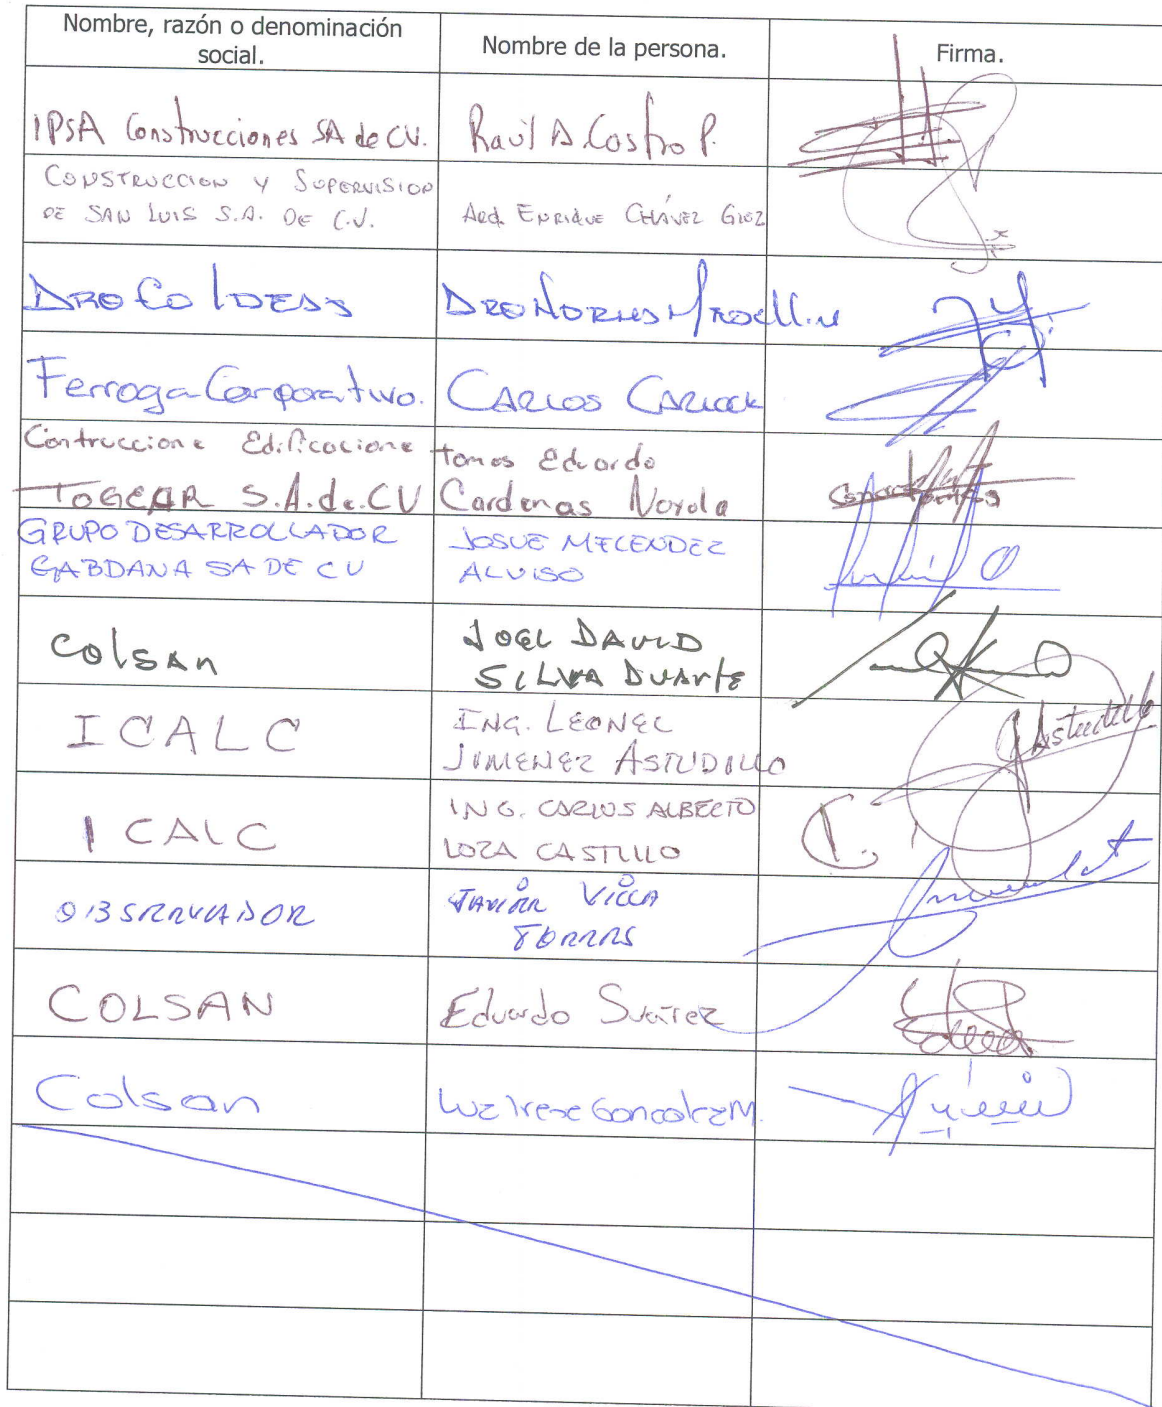 Nombre, razón o denominación
social.
Nombre de la persona.
Firma.
IPSA Construcciones SA de CV.
Raúl A. Castro P.
CONSTRUCCION Y SUPERVISION
DE SAN LUIS S.A. DE C.V.
ARQ. ENRIQUE CHÁVEZ GLEZ
Ferroga Corporativo.
CARLOS
Contruccione Edificacione
TOGECAR S.A.de.CV
tomas Eduardo
Cardenas Norola
GRUPO DESARROLLADOR
GABDANA SA DE CV
JOSUE MELENDEZ
ALVISO
Colsan
JOEL DAVID
SILVA DUARTE
ICALC
ING. LEONEL
JIMENEZ ASTUDILLO
Astudillo
ICALC
ING. CARLOS ALBERTO
LOZA CASTILLO
OBSERVADOR
JAVIER VILLA
TORRES
COLSAN
Eduardo Suárez
Colsan
Luz Irene Gonzalez M.